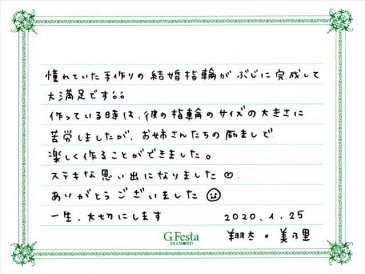 憧れていた手作りの結婚指輪がぶじに完成して
大満足です!!
作っている時は、彼の指輪のサイズの大きさに
苦労しましたが、お姉さんたちの励ましで
楽しく作ることができました。
ステキな思い出になりました♡
ありがとうございました
一生、大切にします 2020.1.25
翔太・美乃里
G.Festa
DIAMOND